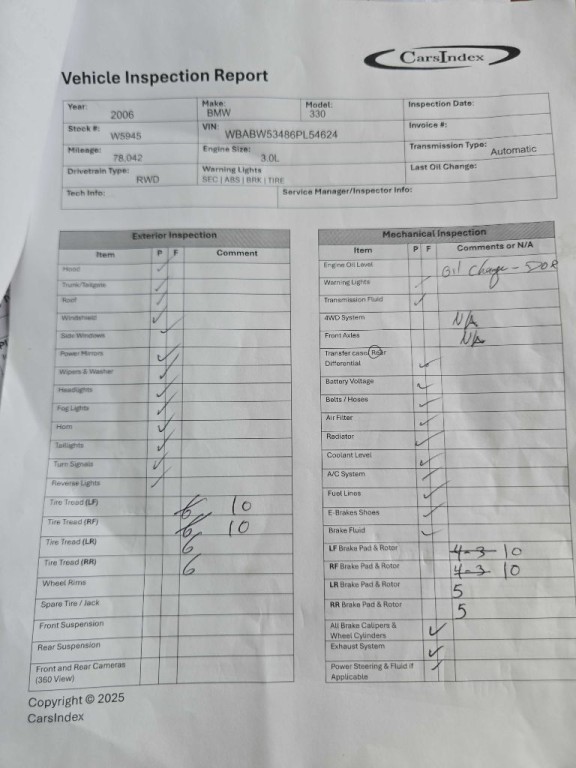 CarsIndex
Vehicle Inspection Report
Year: 2006 Make: BMW Model: 330 Inspection Date:
Stock #: W5945 VIN: WBABW53486PL54624 Invoice #:
Mileage: 78,042 Engine Size: 3.0L Transmission Type: Automatic
Drivetrain Type: RWD Warning Lights SEC | ABS | BRK | TIRE Last Oil Change:
Tech Info: Service Manager/Inspector Info:
Exterior Inspection
Item P F Comment
Hood ✓
Trunk/Tailgate ✓
Roof ✓
Windshield ✓
Side Windows ✓
Power Mirrors ✓
Wipers & Washer ✓
Headlights ✓
Fog Lights ✓
Horn ✓
Taillights ✓
Turn Signals ✓
Reverse Lights ✓
Tire Tread (LF) 6 10
Tire Tread (RF) 6 10
Tire Tread (LR) 6
Tire Tread (RR) 6
Wheel Rims
Spare Tire / Jack
Front Suspension
Rear Suspension
Front and Rear Cameras
(360 View)
Mechanical Inspection
Item P F Comments or N/A
Engine Oil Level Oil Change -
Warning Lights ✓
Transmission Fluid ✓
4WD System N/A
Front Axles N/A
Transfer case/Rear
Differential ✓
Battery Voltage ✓
Belts / Hoses ✓
Air Filter ✓
Radiator ✓
Coolant Level ✓
A/C System ✓
Fuel Lines ✓
E-Brakes Shoes ✓
Brake Fluid ✓
LF Brake Pad & Rotor 4-3 10
RF Brake Pad & Rotor 4-3 10
LR Brake Pad & Rotor 5
RR Brake Pad & Rotor 5
All Brake Calipers &
Wheel Cylinders ✓
Exhaust System ✓
Power Steering & Fluid if
Applicable ✓
Copyright © 2025
CarsIndex